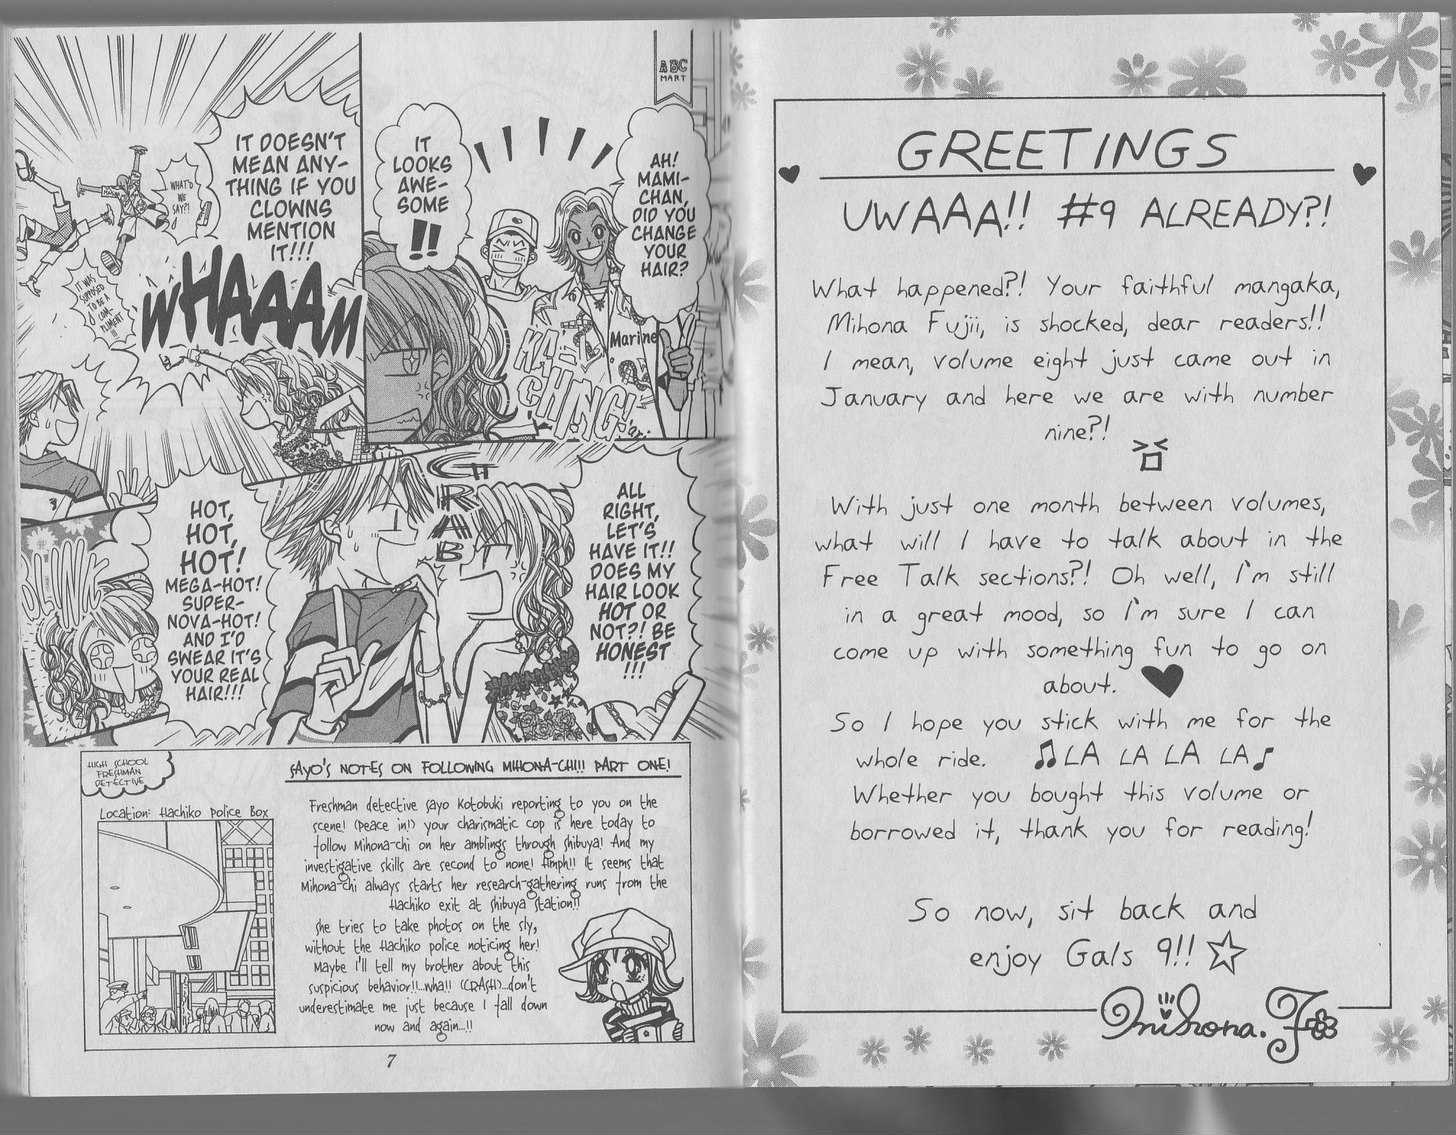 IT DOESN'T
MEAN ANY-
THING IF YOU
CLOWNS
MENTION
IT!!!
WHAT'D
WE
SAY?!
IT WAS
SUPPOSED
TO BE A
COM-
PLIMENT
!!!
WHAAAM
ABC
MART
IT
LOOKS
AWE-
SOME
!!
AH!
MAMI-
CHAN,
DID YOU
CHANGE
YOUR
HAIR?
Marine
KA-
CHING!
GRAB
ALL
RIGHT,
LET'S
HAVE IT!!
DOES MY
HAIR LOOK
HOT OR
NOT?! BE
HONEST
!!!
HOT,
HOT,
HOT!
MEGA-HOT!
SUPER-
NOVA-HOT!
AND I'D
SWEAR IT'S
YOUR REAL
HAIR!!!
HIGH SCHOOL
FRESHMAN
DETECTIVE
Location: Hachiko Police Box
SAYO'S NOTES ON FOLLOWING MIHONA-CHI!! PART ONE!
Freshman detective Sayo Kotobuki reporting to you on the
scene! (Peace in!) Your charismatic cop is here today to
follow Mihona-chi on her amblings through Shibuya! And my
investigative skills are second to none! Hmph!! It seems that
Mihona-chi always starts her research-gathering runs from the
Hachiko exit at Shibuya Station!!
She tries to take photos on the sly,
without the Hachiko police noticing her!
Maybe I'll tell my brother about this
suspicious behavior!!...Wha!! (CRASH)...Don't
underestimate me just because I fall down
now and again...!!
7
GREETINGS
UWAAA!! #9 ALREADY?!
What happened?! Your faithful mangaka,
Mihona Fujii, is shocked, dear readers!!
I mean, volume eight just came out in
January and here we are with number
nine?!
With just one month between volumes,
what will I have to talk about in the
Free Talk sections?! Oh well, I'm still
in a great mood, so I'm sure I can
come up with something fun to go on
about. ♥
So I hope you stick with me for the
whole ride. ♫LA LA LA LA♪
Whether you bought this volume or
borrowed it, thank you for reading!
So now, sit back and
enjoy Gals 9!!☆
Mihona.F